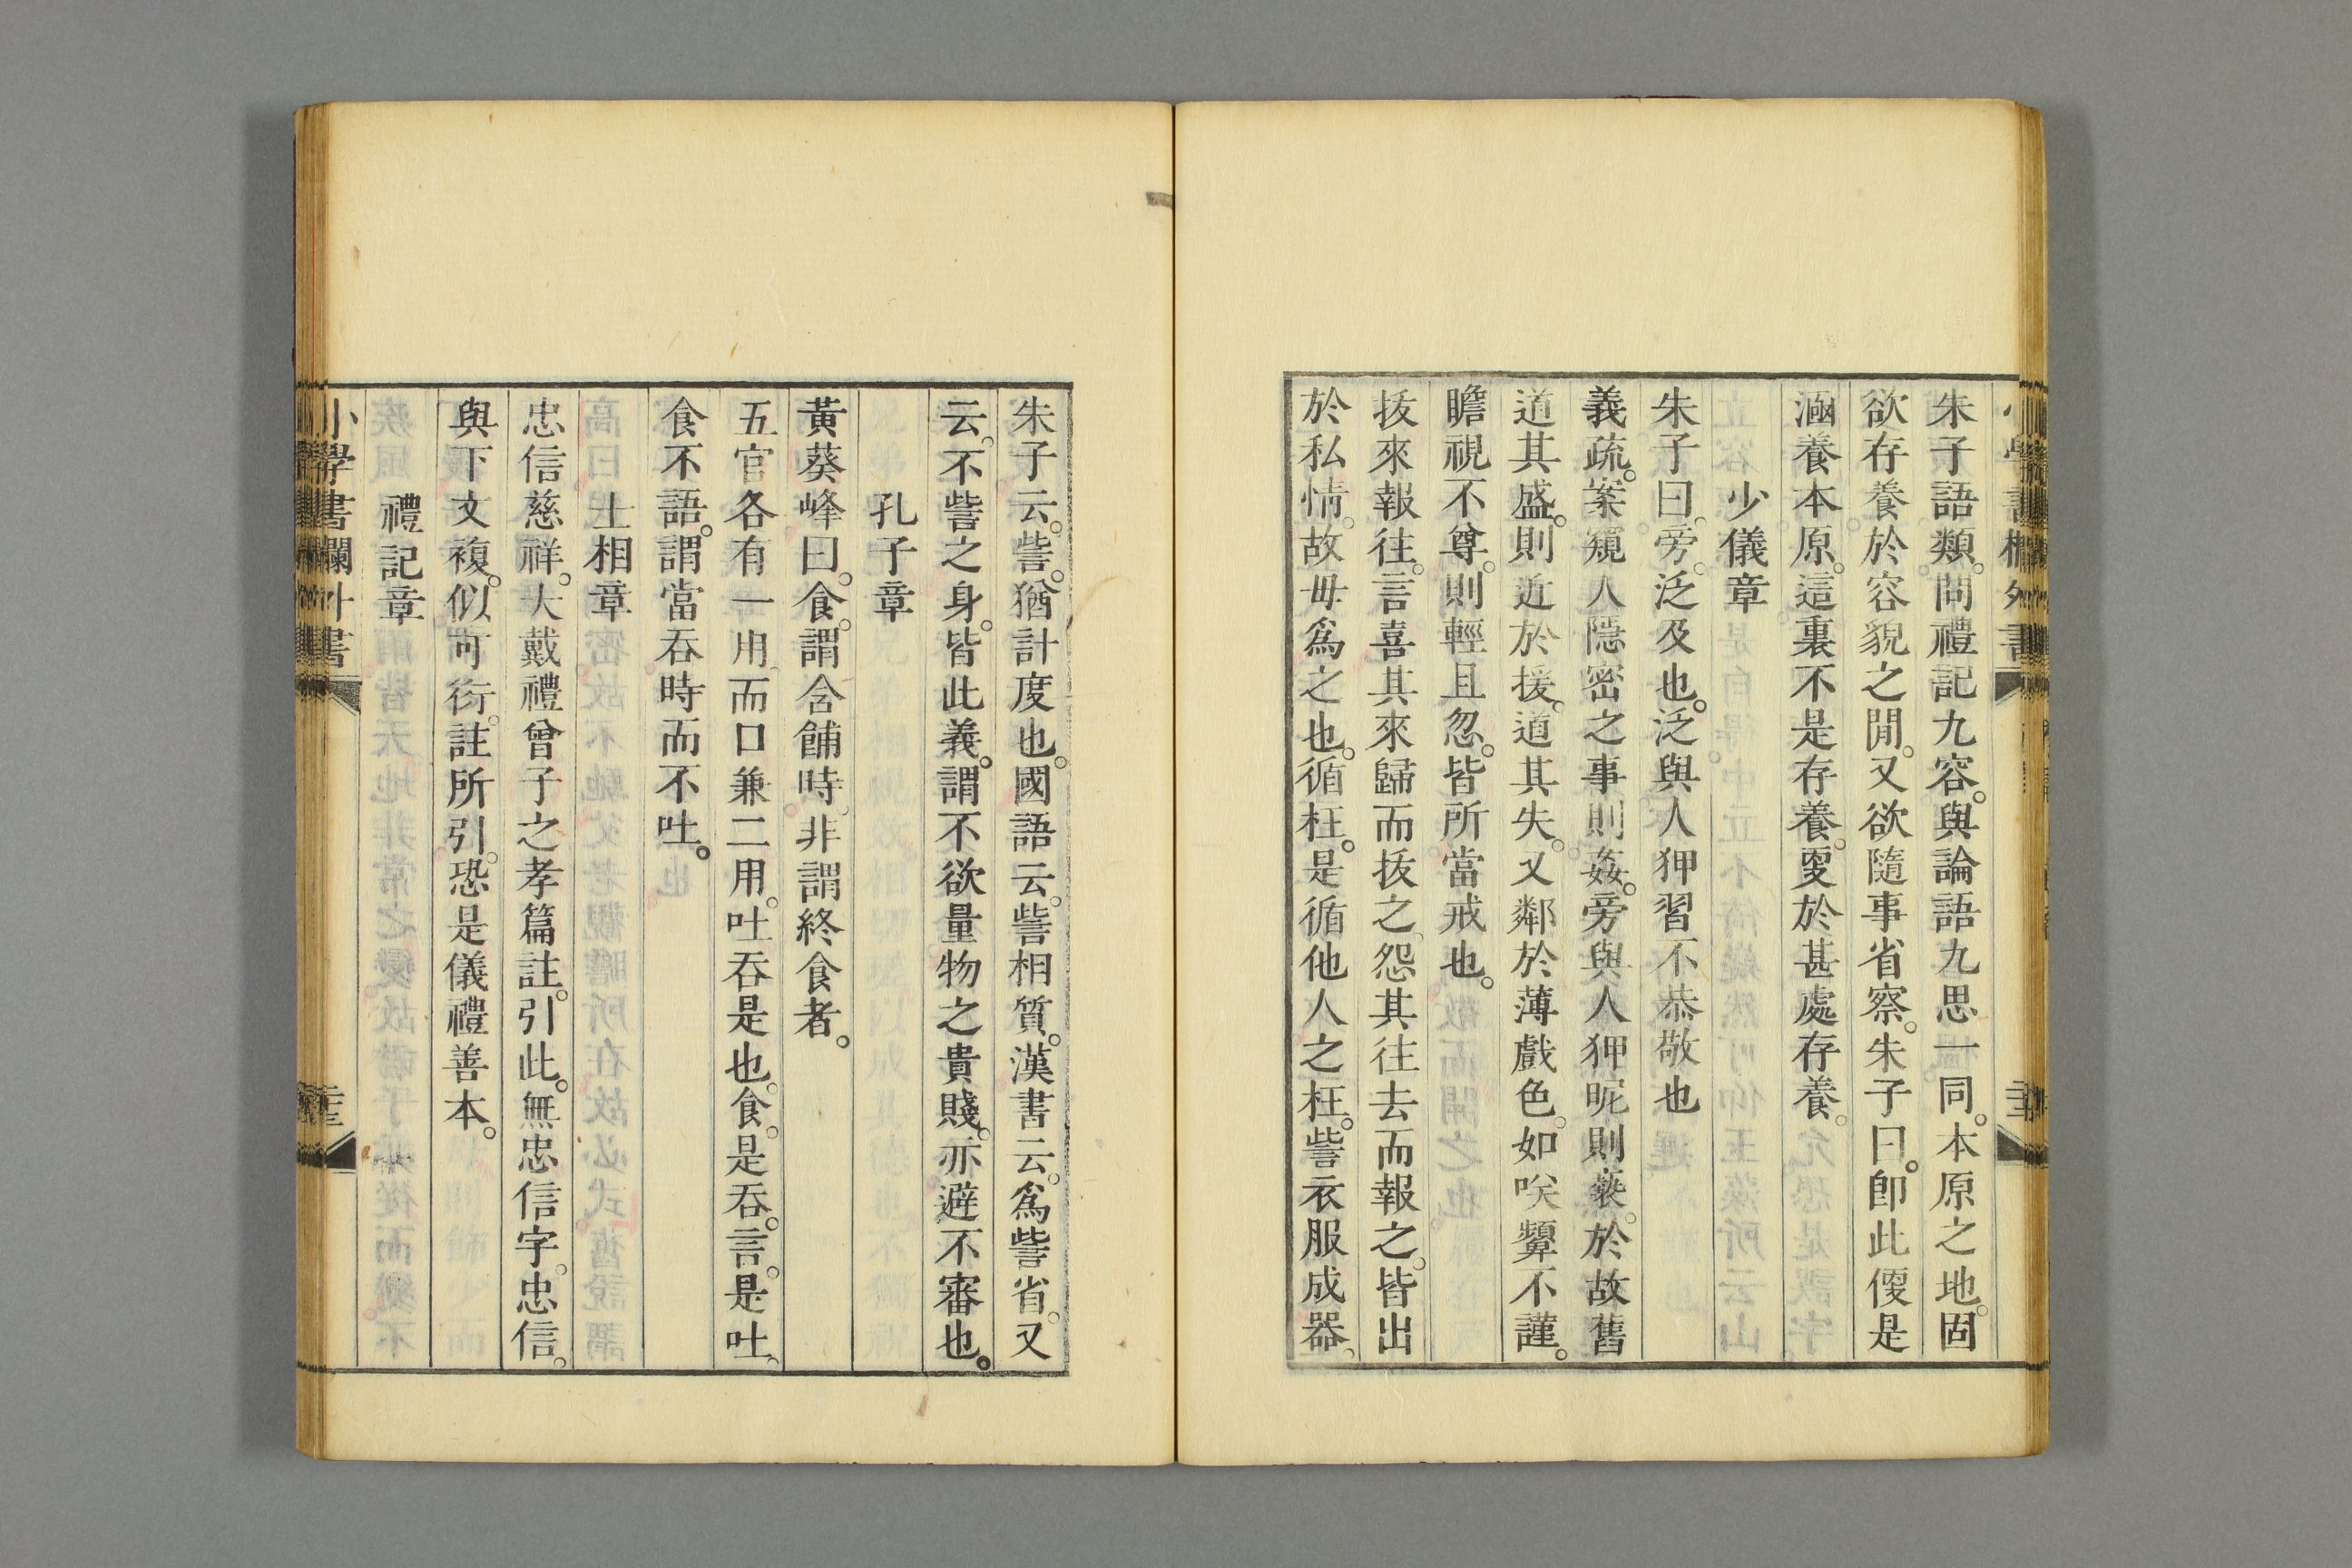 朱子語類。問禮記九容。與論語九思一同。本原之地。固
欲存養於容貌之閒。又欲隨事省察。朱子曰。卽此便是
涵養本原。這裏不是存養。更於甚處存養。
少儀章
朱子曰。旁。泛及也。泛與人狎習不恭敬也
義疏。案窺人隱密之事則姦。旁與人狎昵則褻。於故舊
道其盛。則近於援。道其失。又鄰於薄戲色。如唉顰不謹。
瞻視不尊。則輕且忽。皆所當戒也。
拔來報往。言喜其來歸而拔之。怨其往去而報之。皆出
於私情。故毋爲之也。循枉。是循他人之枉。訾衣服成器。
朱子云。訾。猶計度也。國語云。訾相質。漢書云。爲訾省。又
云。不訾之身。皆此義。謂不欲量物之貴賤。亦避不審也。
孔子章
黃葵峰曰。食。謂含餔時。非謂終食者。
五官各有一用。而口兼二用。吐吞是也。食。是吞。言。是吐。
食不語。謂當吞時而不吐。
士相章
忠信慈祥。大戴禮曾子之孝篇註。引此。無忠信字。忠信。
與下文複。似可衍。註所引。恐是儀禮善本。
禮記章
小學書欄外書